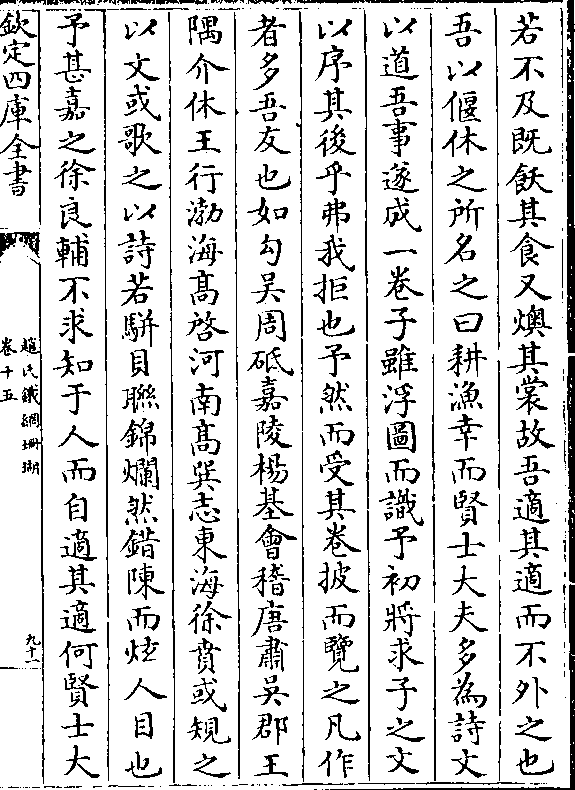 若不及既飫其食又燠其裳故吾適其適而不外之也
吾以偃休之所名之曰耕漁幸而賢士大夫多為詩文
以道吾事遂成一卷子雖浮圖而識予初將求子之文
以序其後乎弗我拒也予然而受其卷披而覽之凡作
者多吾友也如勾吳周砥嘉陵楊基會稽唐肅吳郡王
隅介休王行渤海髙啓河南髙巽志東海徐賁或規之
以文或歌之以詩若駢貝聯錦爛然錯陳而炫人目也
予甚嘉之徐良輔不求知于人而自適其適何賢士大
欽定四庫全書
趙氏鐵網珊瑚
卷十五
九十一